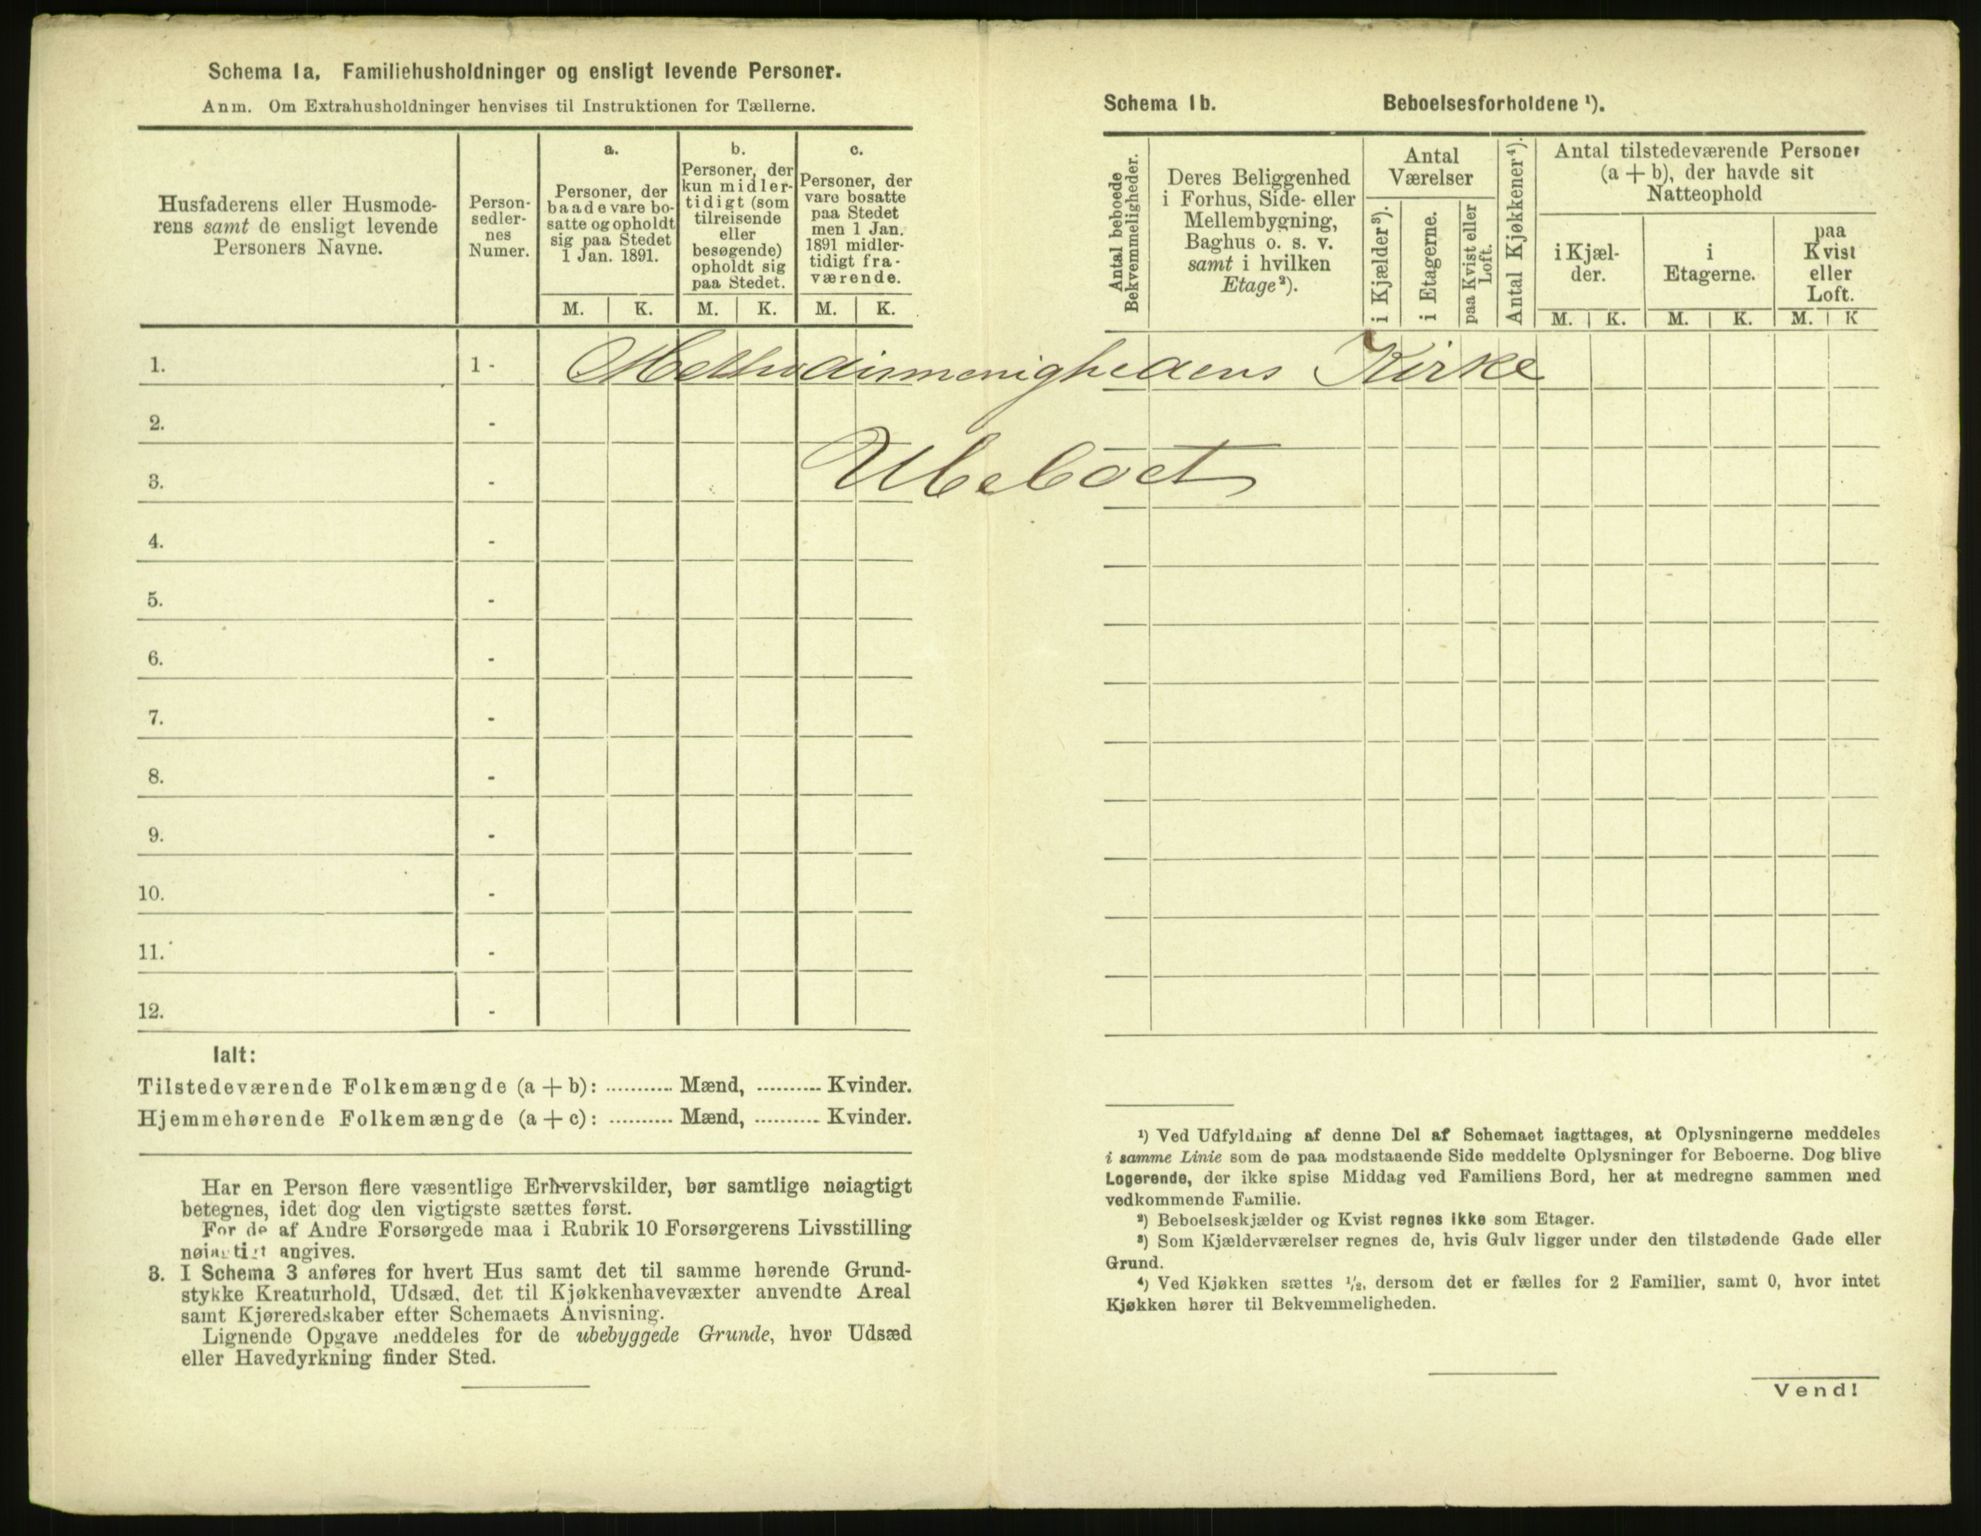 Schema 1a. Familiehusholdninger og ensligt levende Personer.
Anm. Om Extrahusholdninger henvises til Instruktionen for Tællerne.
Husfaderens eller Husmode-
rens samt de ensligt levende
Personers Navne.
Person-
sedler-
nes
Numer.
a.
Personer, der
baade vare bo-
satte og opholdt
sig paa Stedet
1 Jan. 1891.
b.
Personer, der
kun midler-
tidigt (som
tilreisende
eller
besøgende)
opholdt sig
paa Stedet.
c.
Personer, der
vare bosatte
paa Stedet
men 1 Jan.
1891 midler-
tidigt fra-
værende.
M. K. M. K. M. K.
1. 1 -
2. -
3. -
4. -
5. -
6. -
7. -
8. -
9. -
10. -
11. -
12. -
Ialt:
Tilstedeværende Folkemængde (a + b): ........... Mænd, ........... Kvinder.
Hjemmehørende Folkemængde (a + c): ........... Mænd, ........... Kvinder.
Har en Person flere væsentlige Erhvervskilder, bør samtlige nøiagtigt
betegnes, idet dog den vigtigste sættes først.
For de af Andre Forsørgede maa i Rubrik 10 Forsørgerens Livsstilling
nøiagtigt angives.
3. I Schema 3 anføres for hvert Hus samt det til samme hørende Grund-
stykke Kreaturhold, Udsæd, det til Kjøkkenhavevæxter anvendte Areal
samt Kjøreredskaber efter Schemaets Anvisning.
Lignende Opgave meddeles for de ubebyggede Grunde, hvor Udsæd
eller Havedyrkning finder Sted.
Methodistmenighedens Kirke
Ubeboet
Schema 1b. Beboelsesforholdene ¹).
Antal beboede
Bekvemmeligheder.
Deres Beliggenhed
i Forhus, Side- eller
Mellembygning,
Baghus o. s. v.
samt i hvilken
Etage ²).
Antal
Værelser
i Kjælder ³).
i Etagerne.
paa Kvist eller
Loft.
Antal Kjøkkener ⁴).
Antal tilstedeværende Personer
(a + b), der havde sit
Natteophold
i Kjæl-
der.
i
Etagerne.
paa
Kvist
eller
Loft.
M. K. M. K. M. K
¹) Ved Udfyldning af denne Del af Schemaet iagttages, at Oplysningerne meddeles
i samme Linie som de paa modstaaende Side meddelte Oplysninger for Beboerne. Dog blive
Logerende, der ikke spise Middag ved Familiens Bord, her at medregne sammen med
vedkommende Familie.
²) Beboelseskjælder og Kvist regnes ikke som Etager.
³) Som Kjælderværelser regnes de, hvis Gulv ligger under den tilstødende Gade eller
Grund.
⁴) Ved Kjøkken sættes ½, dersom det er fælles for 2 Familier, samt 0, hvor intet
Kjøkken hører til Bekvemmeligheden.
Vend!